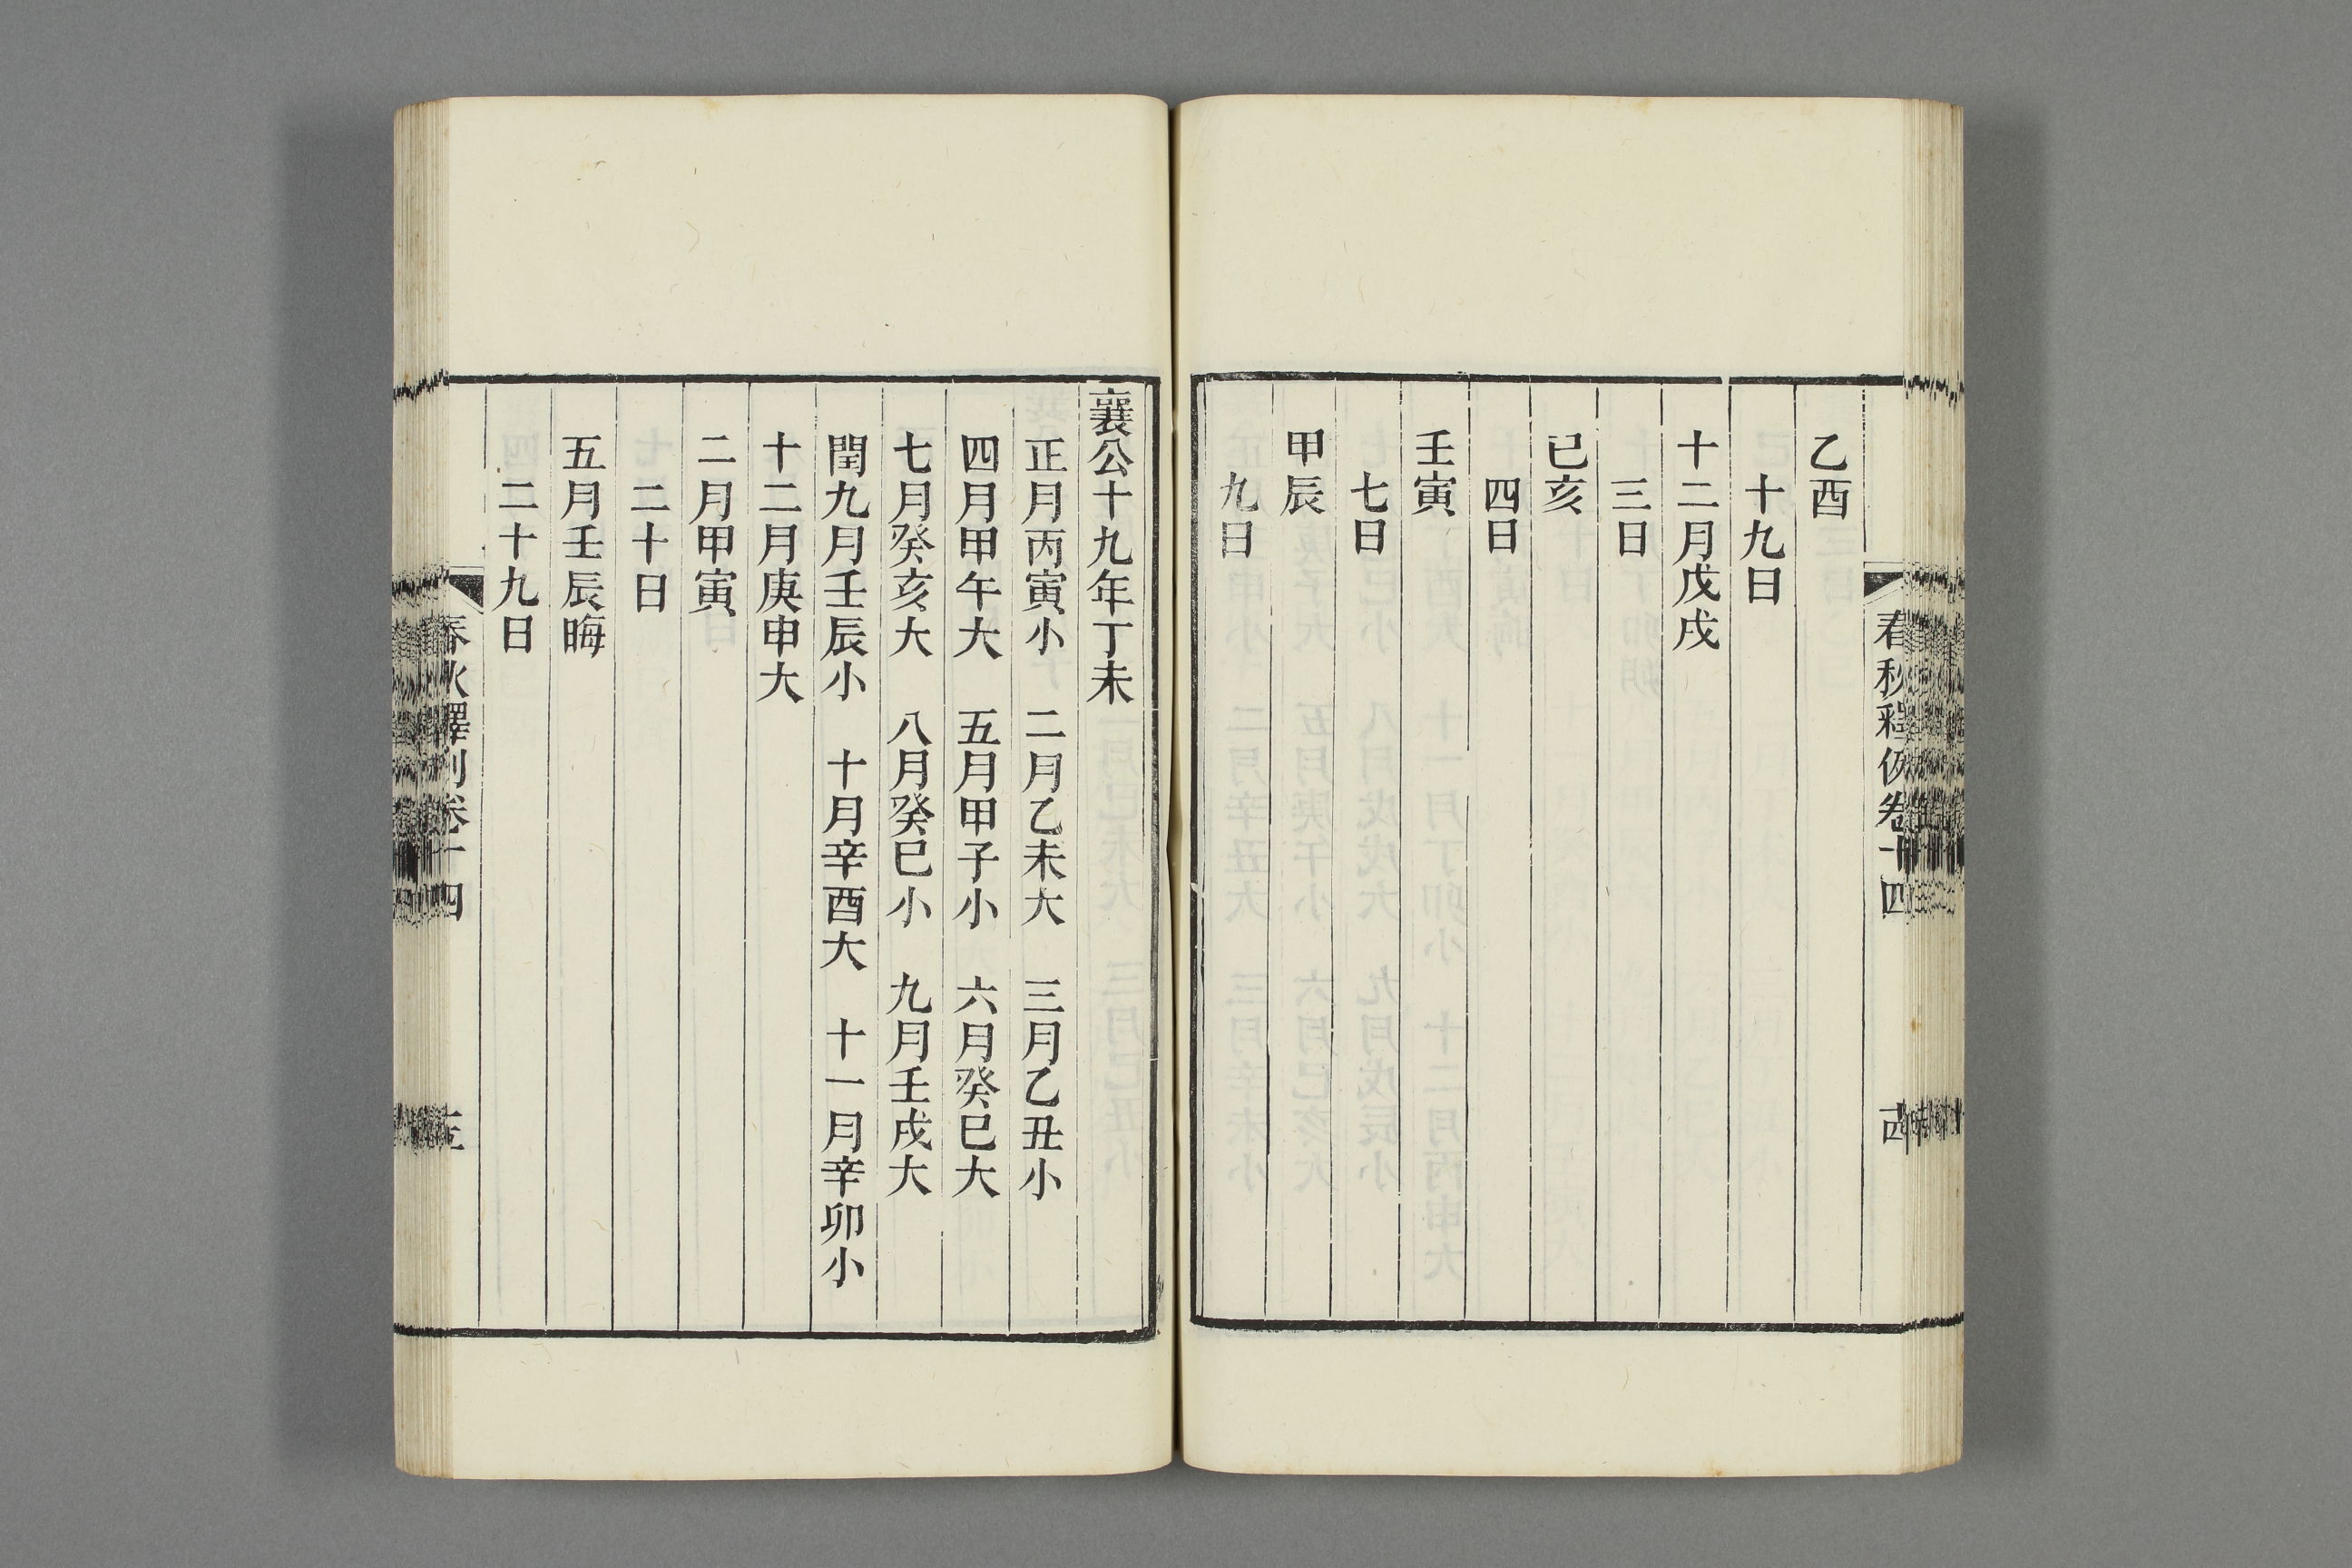 乙酉
十九日
十二月戊戌
三日
已亥
四日
壬寅
七日
甲辰
九日
襄公十九年丁未
正月丙寅小　二月乙未大　三月乙丑小
四月甲午大　五月甲子小　六月癸巳大
七月癸亥大　八月癸巳小　九月壬戌大
閏九月壬辰小　十月辛酉大　十一月辛卯小
十二月庚申大
二月甲寅
二十日
五月壬辰晦
二十九日
春秋釋例卷十四